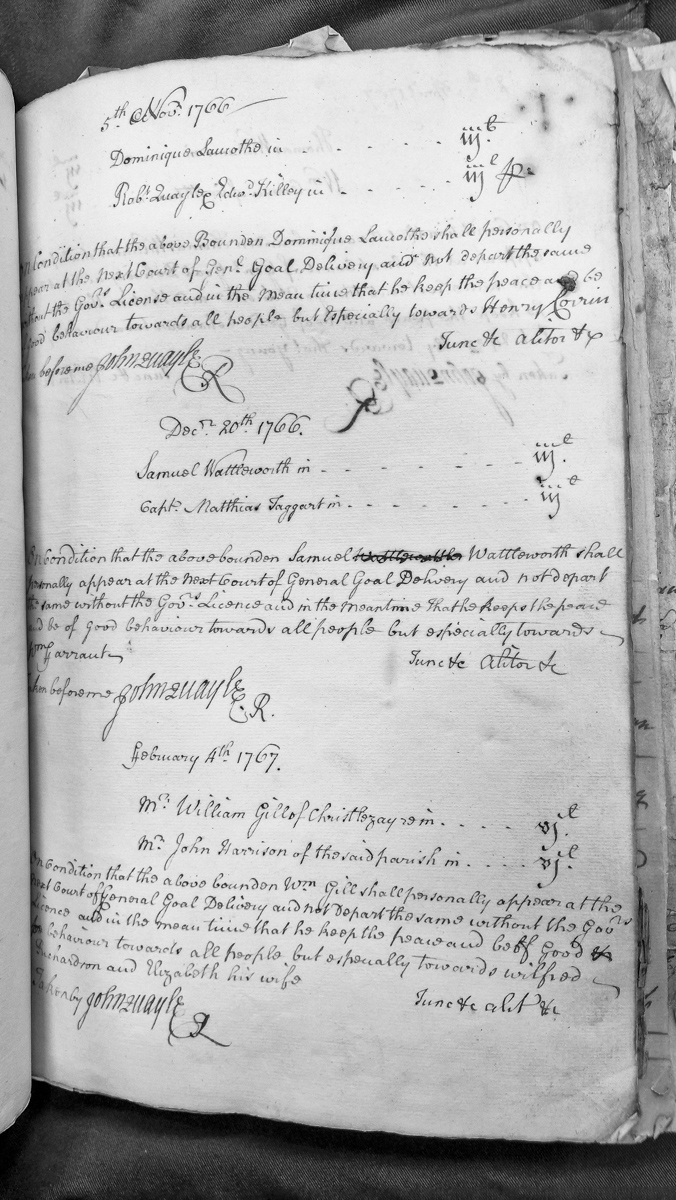 5th Novr. 1766
Dominique Lamothe in - - - - iijl.
Robt. Quayle & Edwd. Killey in - - - - iijl
Condition that the above Bounden Dominique Lamothe shall personally
appear at the next Court of Genl. Goal Delivery and not depart the same
without the Govrs. License and in the mean time that he keep the peace and be
Good behaviour towards all people but Especially towards Henry Corrin
Tunc &c alitor &c
before me John Quayle
CR
Decr. 20th. 1766.
Samuel Wattleworth in - - - - - - iijl.
Capt. Matthias Taggart in - - - - - - iijl
On Condition that the above bounden Samuel Wattleworth shall
personally appear at the next Court of General Goal Delivery and not depart
the same without the Govrs. Licence and in the meantime that he keeps the peace
and be of Good behaviour towards all people but especially towards
Wm Garraut
Tunc &c alitor &c
Taken before me John Quayle
CR.
February 4th. 1767.
Mr. William Gill of Christlezayre in . . . . vjl.
Mr. John Harrison of the said parish in . . . . vjl.
On Condition that the above bounden Wm Gill shall personally appear at the
next Court of General Goal Delivery and not depart the same without the Govrs
Licence and in the mean time that he keep the peace and be of Good
behaviour towards all people but especially towards wilfred
Richardson and Elizabeth his wife
Tunc &c alitr &c
Taken by John Quayle
CR